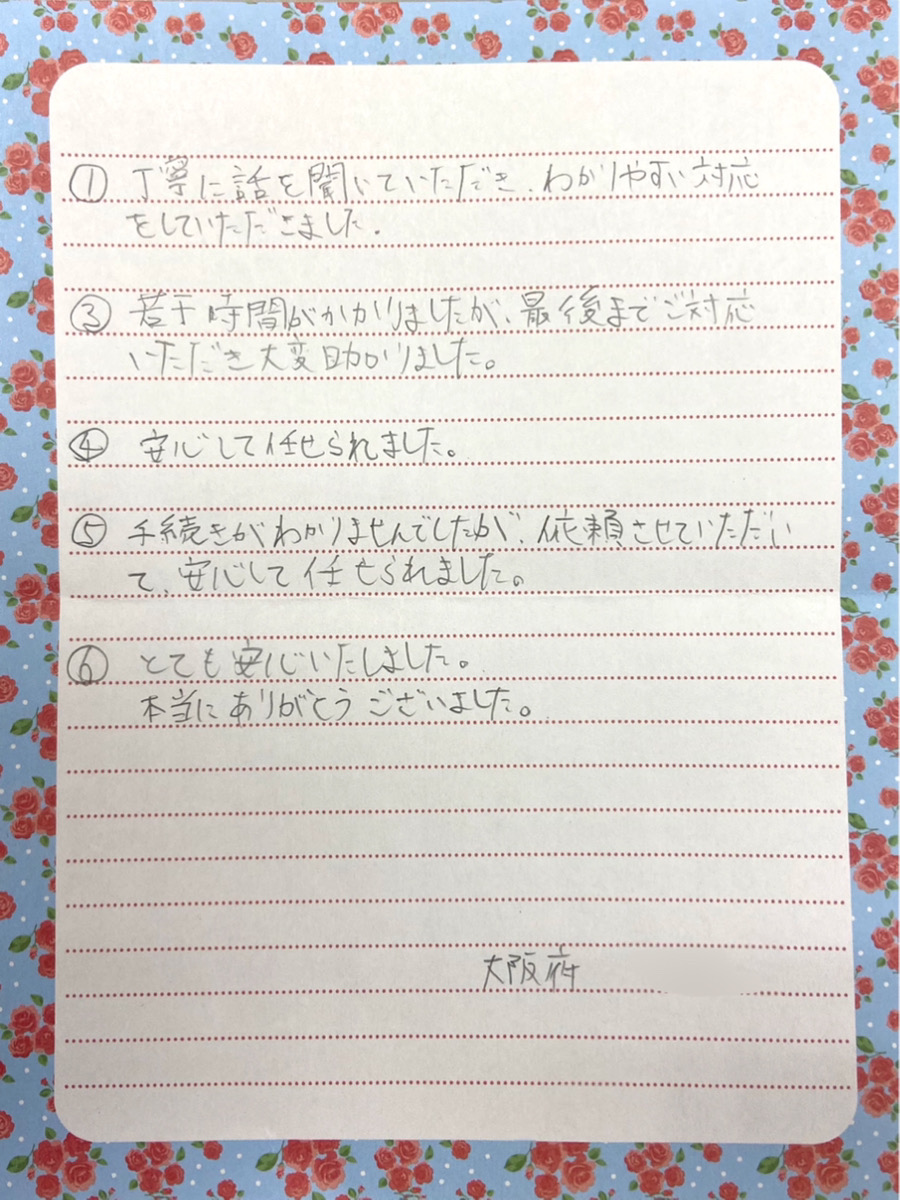 ① 丁寧に話を聞いていただき、わかりやすい対応
をしていただきました.
③ 若干時間がかかりましたが、最後までご対応
いただき大変助かりました。
④ 安心して任せられました。
⑤ 手続きがわかりませんでしたが、依頼させていただい
て、安心して任せられました。
⑥ とても安心いたしました。
本当にありがとうございました。
大阪府